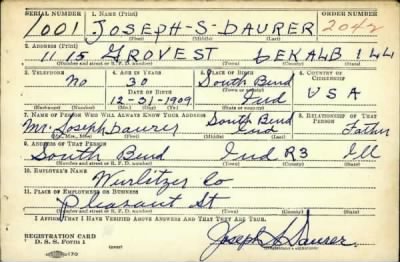 SERIAL NUMBER 1. NAME (Print) ORDER NUMBER
1001 JOSEPH-S-DAURER 2042
(First) (Middle) (Last)
2. ADDRESS (Print)
1115 GROVE ST DEKALB ILL
(Number and street or R. F. D. number) (Town) (County) (State)
3. TELEPHONE 4. AGE IN YEARS 5. PLACE OF BIRTH 6. COUNTRY OF CITIZENSHIP
No 30 South Bend
DATE OF BIRTH (Town or county)
12-31-1909 Ind USA
(Exchange) (Number) (Mo.) (Day) (Yr.) (State or country)
7. NAME OF PERSON WHO WILL ALWAYS KNOW YOUR ADDRESS 8. RELATIONSHIP OF THAT PERSON
Mr. Joseph Daurer South Bend Ind Father
(Mr., Mrs., Miss) (First) (Middle) (Last)
9. ADDRESS OF THAT PERSON
South Bend Ind R3 Ill
(Number and street or R. F. D. number) (Town) (County) (State)
10. EMPLOYER'S NAME
Wurlitzer Co
11. PLACE OF EMPLOYMENT OR BUSINESS
Pleasant St
(Number and street or R. F. D. number) (Town) (County) (State)
I AFFIRM THAT I HAVE VERIFIED ABOVE ANSWERS AND THAT THEY ARE TRUE.
REGISTRATION CARD
D. S. S. Form 1 Joseph S Daurer
(Registrant's signature)